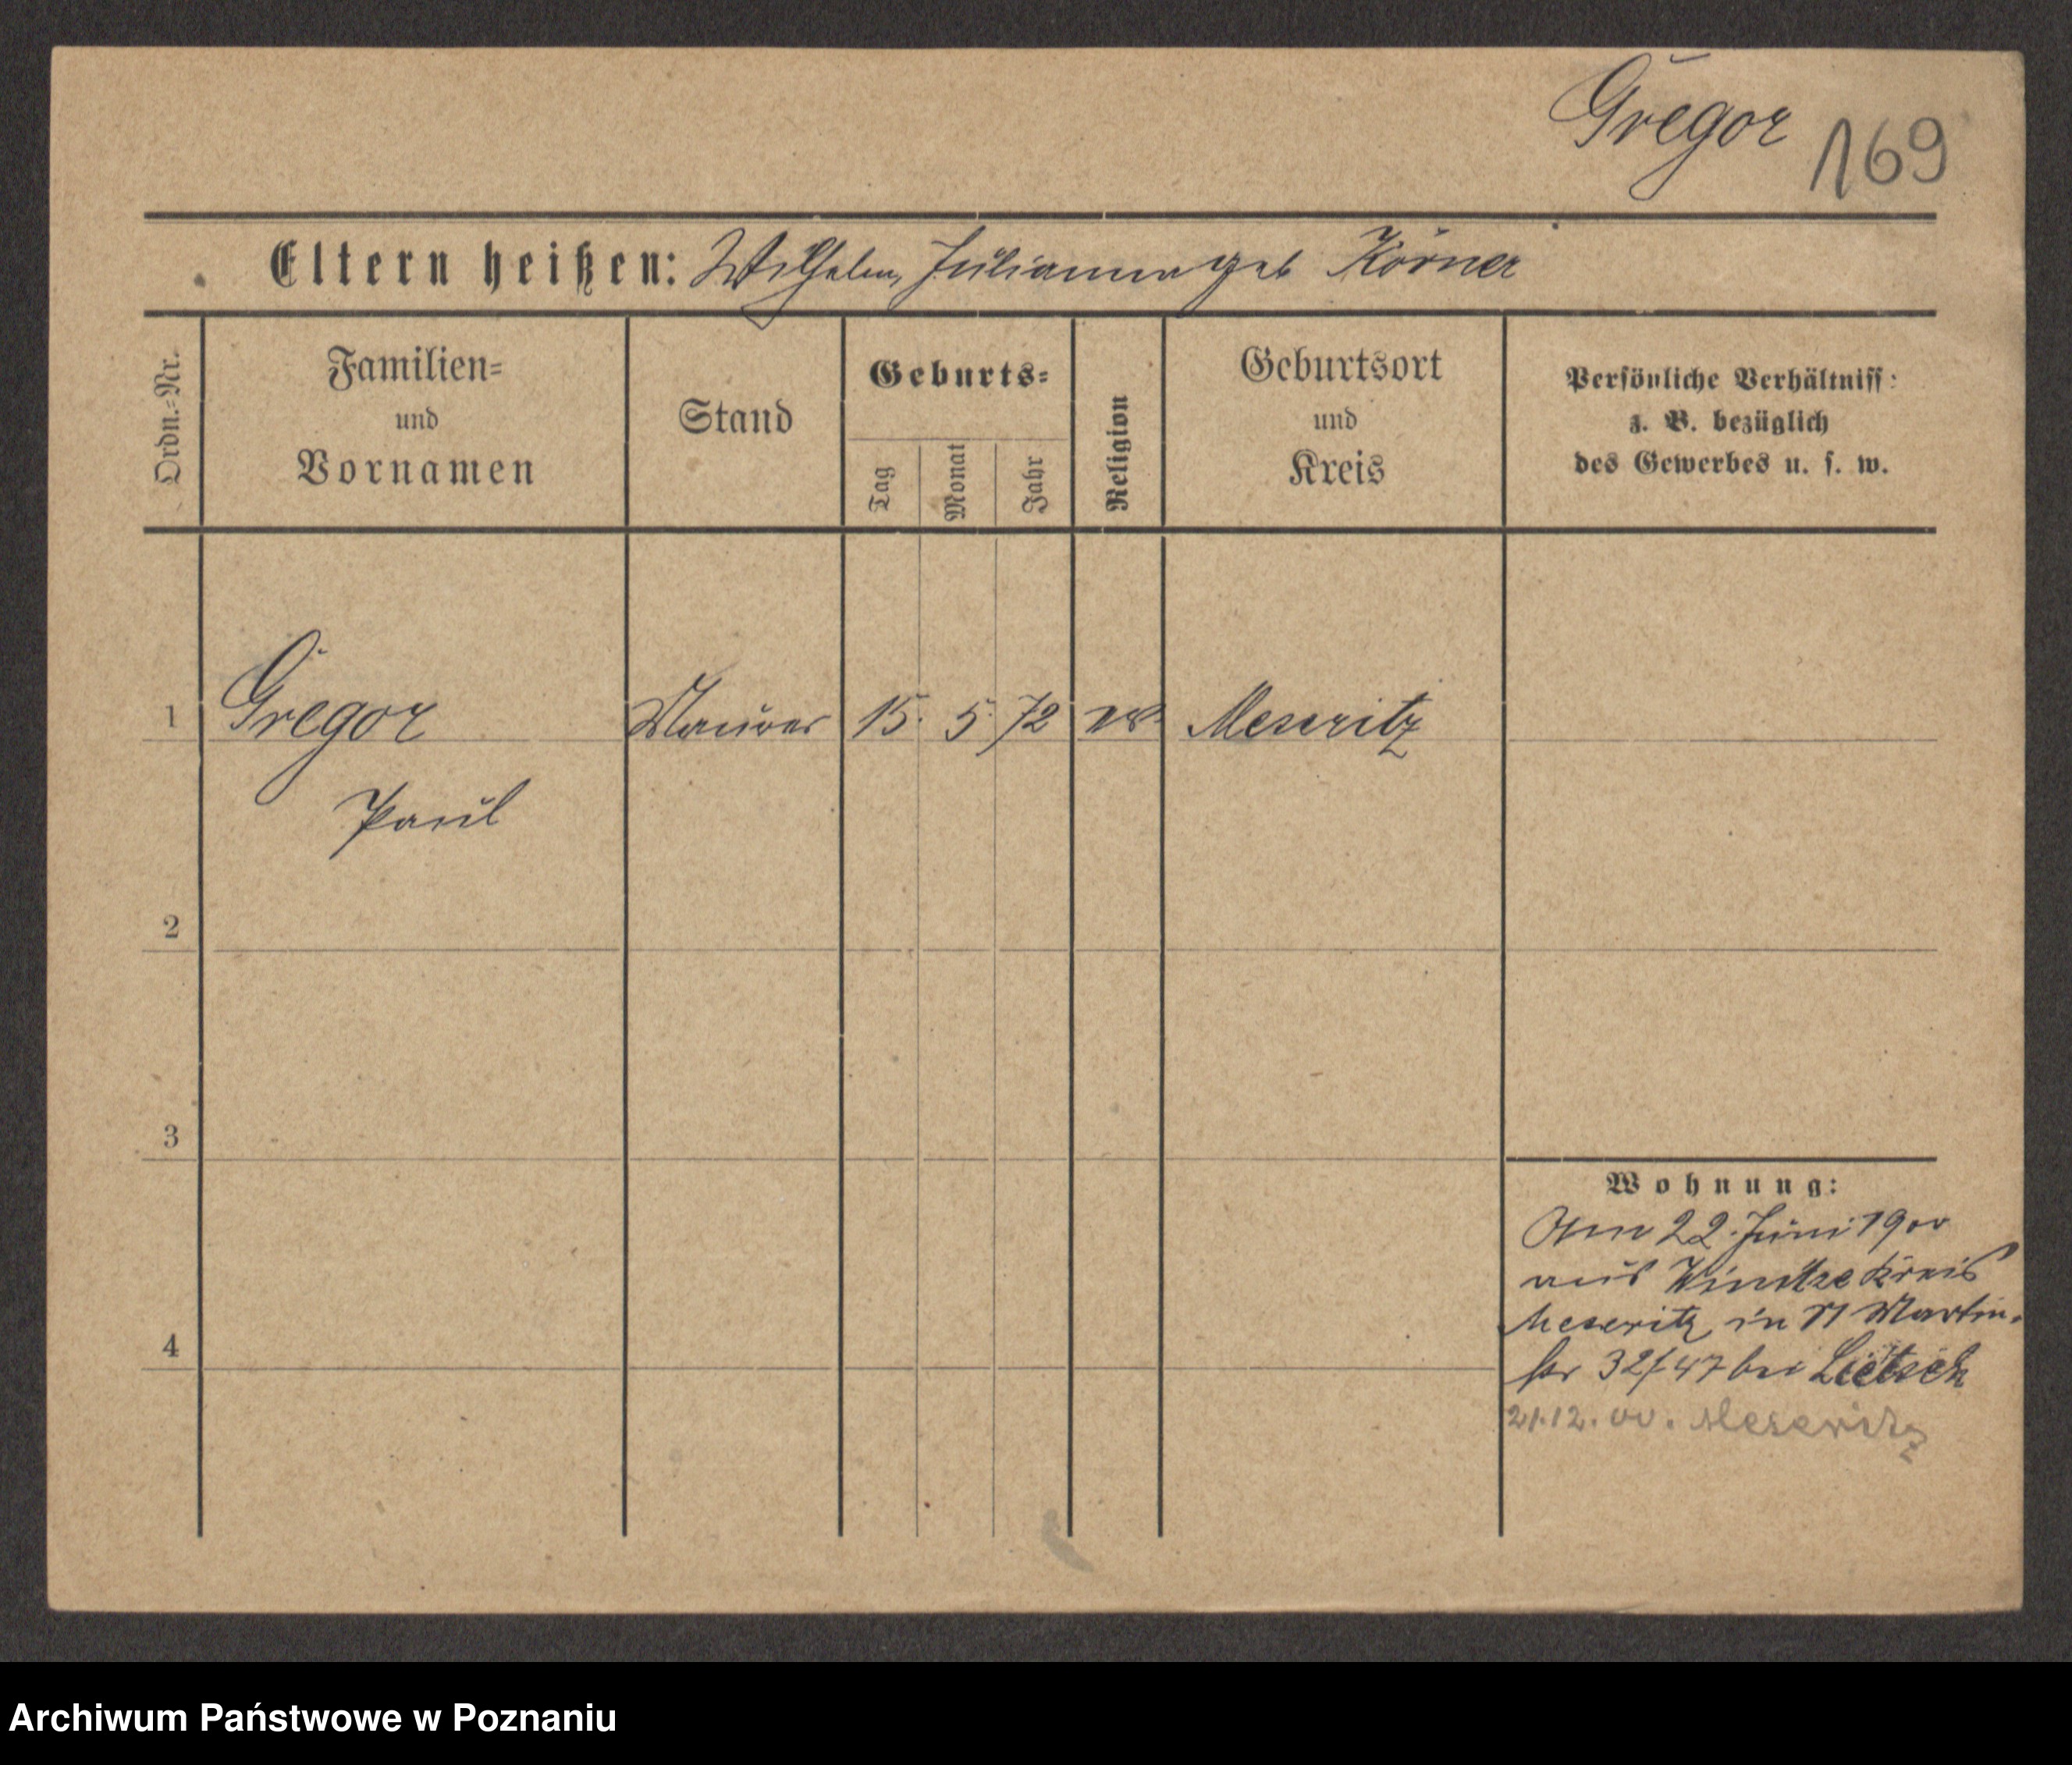 Gregor 169
Eltern heißen: Wilhelm, Julianna geb Körner
Ordn.=Nr.
Familien=
und
Vornamen
Stand
Geburts=
Tag
Monat
Jahr
Religion
Geburtsort
und
Kreis
Persönliche Verhältniss:
z. B. bezüglich
des Gewerbes u. s. w.
1 Gregor Maurer 15. 5. 72 ev. Meseritz
Paul
2
3
4
Wohnung:
Am 22. Juni 1900
aus Kreis
Meseritz in Martin-
str 32/47 bei Lietsch
21.12.00. Meseritz
Archiwum Państwowe w Poznaniu